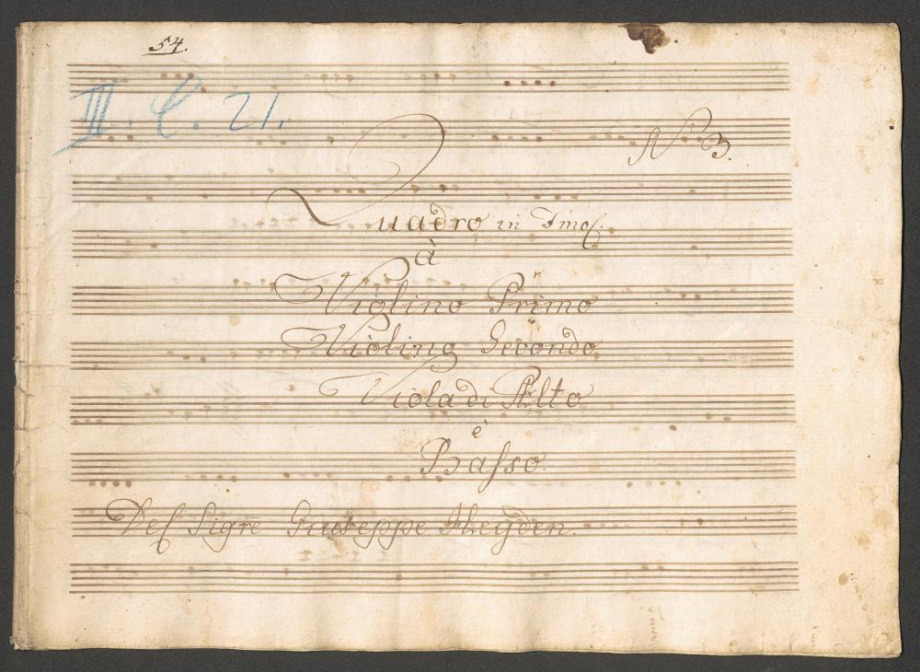 54.
II. C. 21.
No. 3.
Quadro in Dmol.
à
Violino Primo
Violino Secondo
Viola di Alto
è
Basso.
Del Sigre Giuseppe Heyden.